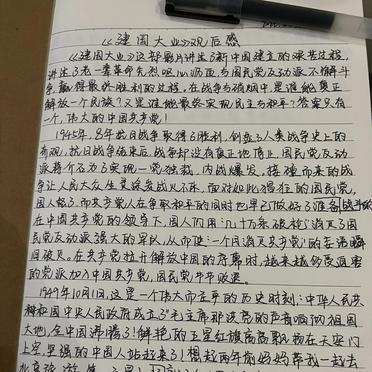 《建国大业》观后感
《建国大业》这部影片讲述了新中国建立的艰苦过程,
讲述了老一辈革命先烈呕心沥血,与国民党反动派不懈斗
争,赢得最终胜利的过程。在战争与硝烟中是谁能真正
解放一个民族?又是谁能最终实现民主与和平?答案只有
一个,伟大的中国共产党!
1945年,8年抗日战争取得了胜利,创立了人类战争史上的
奇观,抗日战争结束后,战争却没有真正地停止,国民党反动
派蒋介石为了实现一党独裁,内战爆发。接踵而来的战
争让人民大众生灵涂炭战火不断,面对如此猖狂的国民党,
国人怒了,而共产党人在争取和平的同时也早已做好了准备战斗的
在中国共产党的领导下,国人们用几十万米破枪"消灭了国
民党反动派强大的军队,从而使"一个月消灭共产党"的美语瞬
间破灭。在共产党拉开解放中国的序幕时,越来越多受迫害
的党派加入中国共产党,国民党节节败退。
1949年10月1日,这是一个伟大而庄严的历史时刻:中华人民共
和国中央人民政府成立了!毛主席那洪亮的声音响彻祖国
大地,全中国沸腾了!鲜艳的五星红旗高高飘扬在天安门
上空,坚强的中国人站起来了!想起两年前妈妈带我一起去